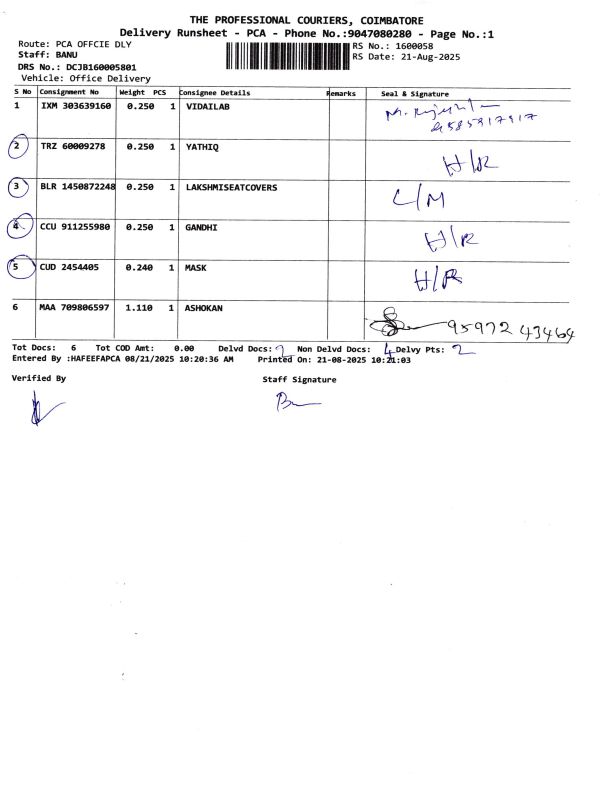 THE PROFESSIONAL COURIERS, COIMBATORE
Delivery Runsheet - PCA - Phone No.:9047080280 - Page No.:1
Route: PCA OFFCIE DLY RS No.: 1600058
Staff: BANU RS Date: 21-Aug-2025
DRS No.: DCJB160005801
Vehicle: Office Delivery
S No Consignment No Weight PCS Consignee Details Remarks Seal & Signature
1 IXM 303639160 0.250 1 VIDAILAB
2 TRZ 60009278 0.250 1 YATHIQ H/R
3 BLR 1450872248 0.250 1 LAKSHMISEATCOVERS C/M
4 CCU 911255980 0.250 1 GANDHI H/R
5 CUD 2454405 0.240 1 MASK H/R
6 MAA 709806597 1.110 1 ASHOKAN 95972 43464
Tot Docs: 6 Tot COD Amt: 0.00 Delvd Docs: Non Delvd Docs: 4 Delvy Pts: 2
Entered By :HAFEEFAPCA 08/21/2025 10:20:36 AM Printed On: 21-08-2025 10:21:03
Verified By Staff Signature